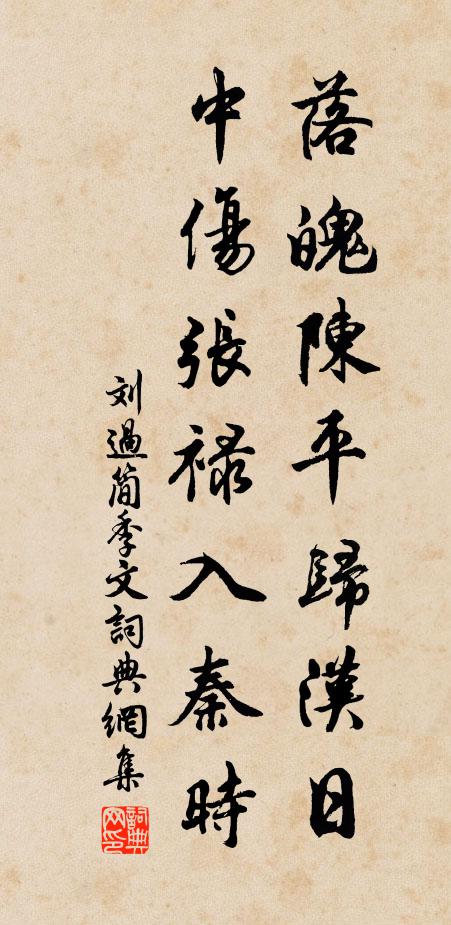 落魄陳平歸漢日
中傷張禄入秦時
刘過简季文詞典網集
詞典网印